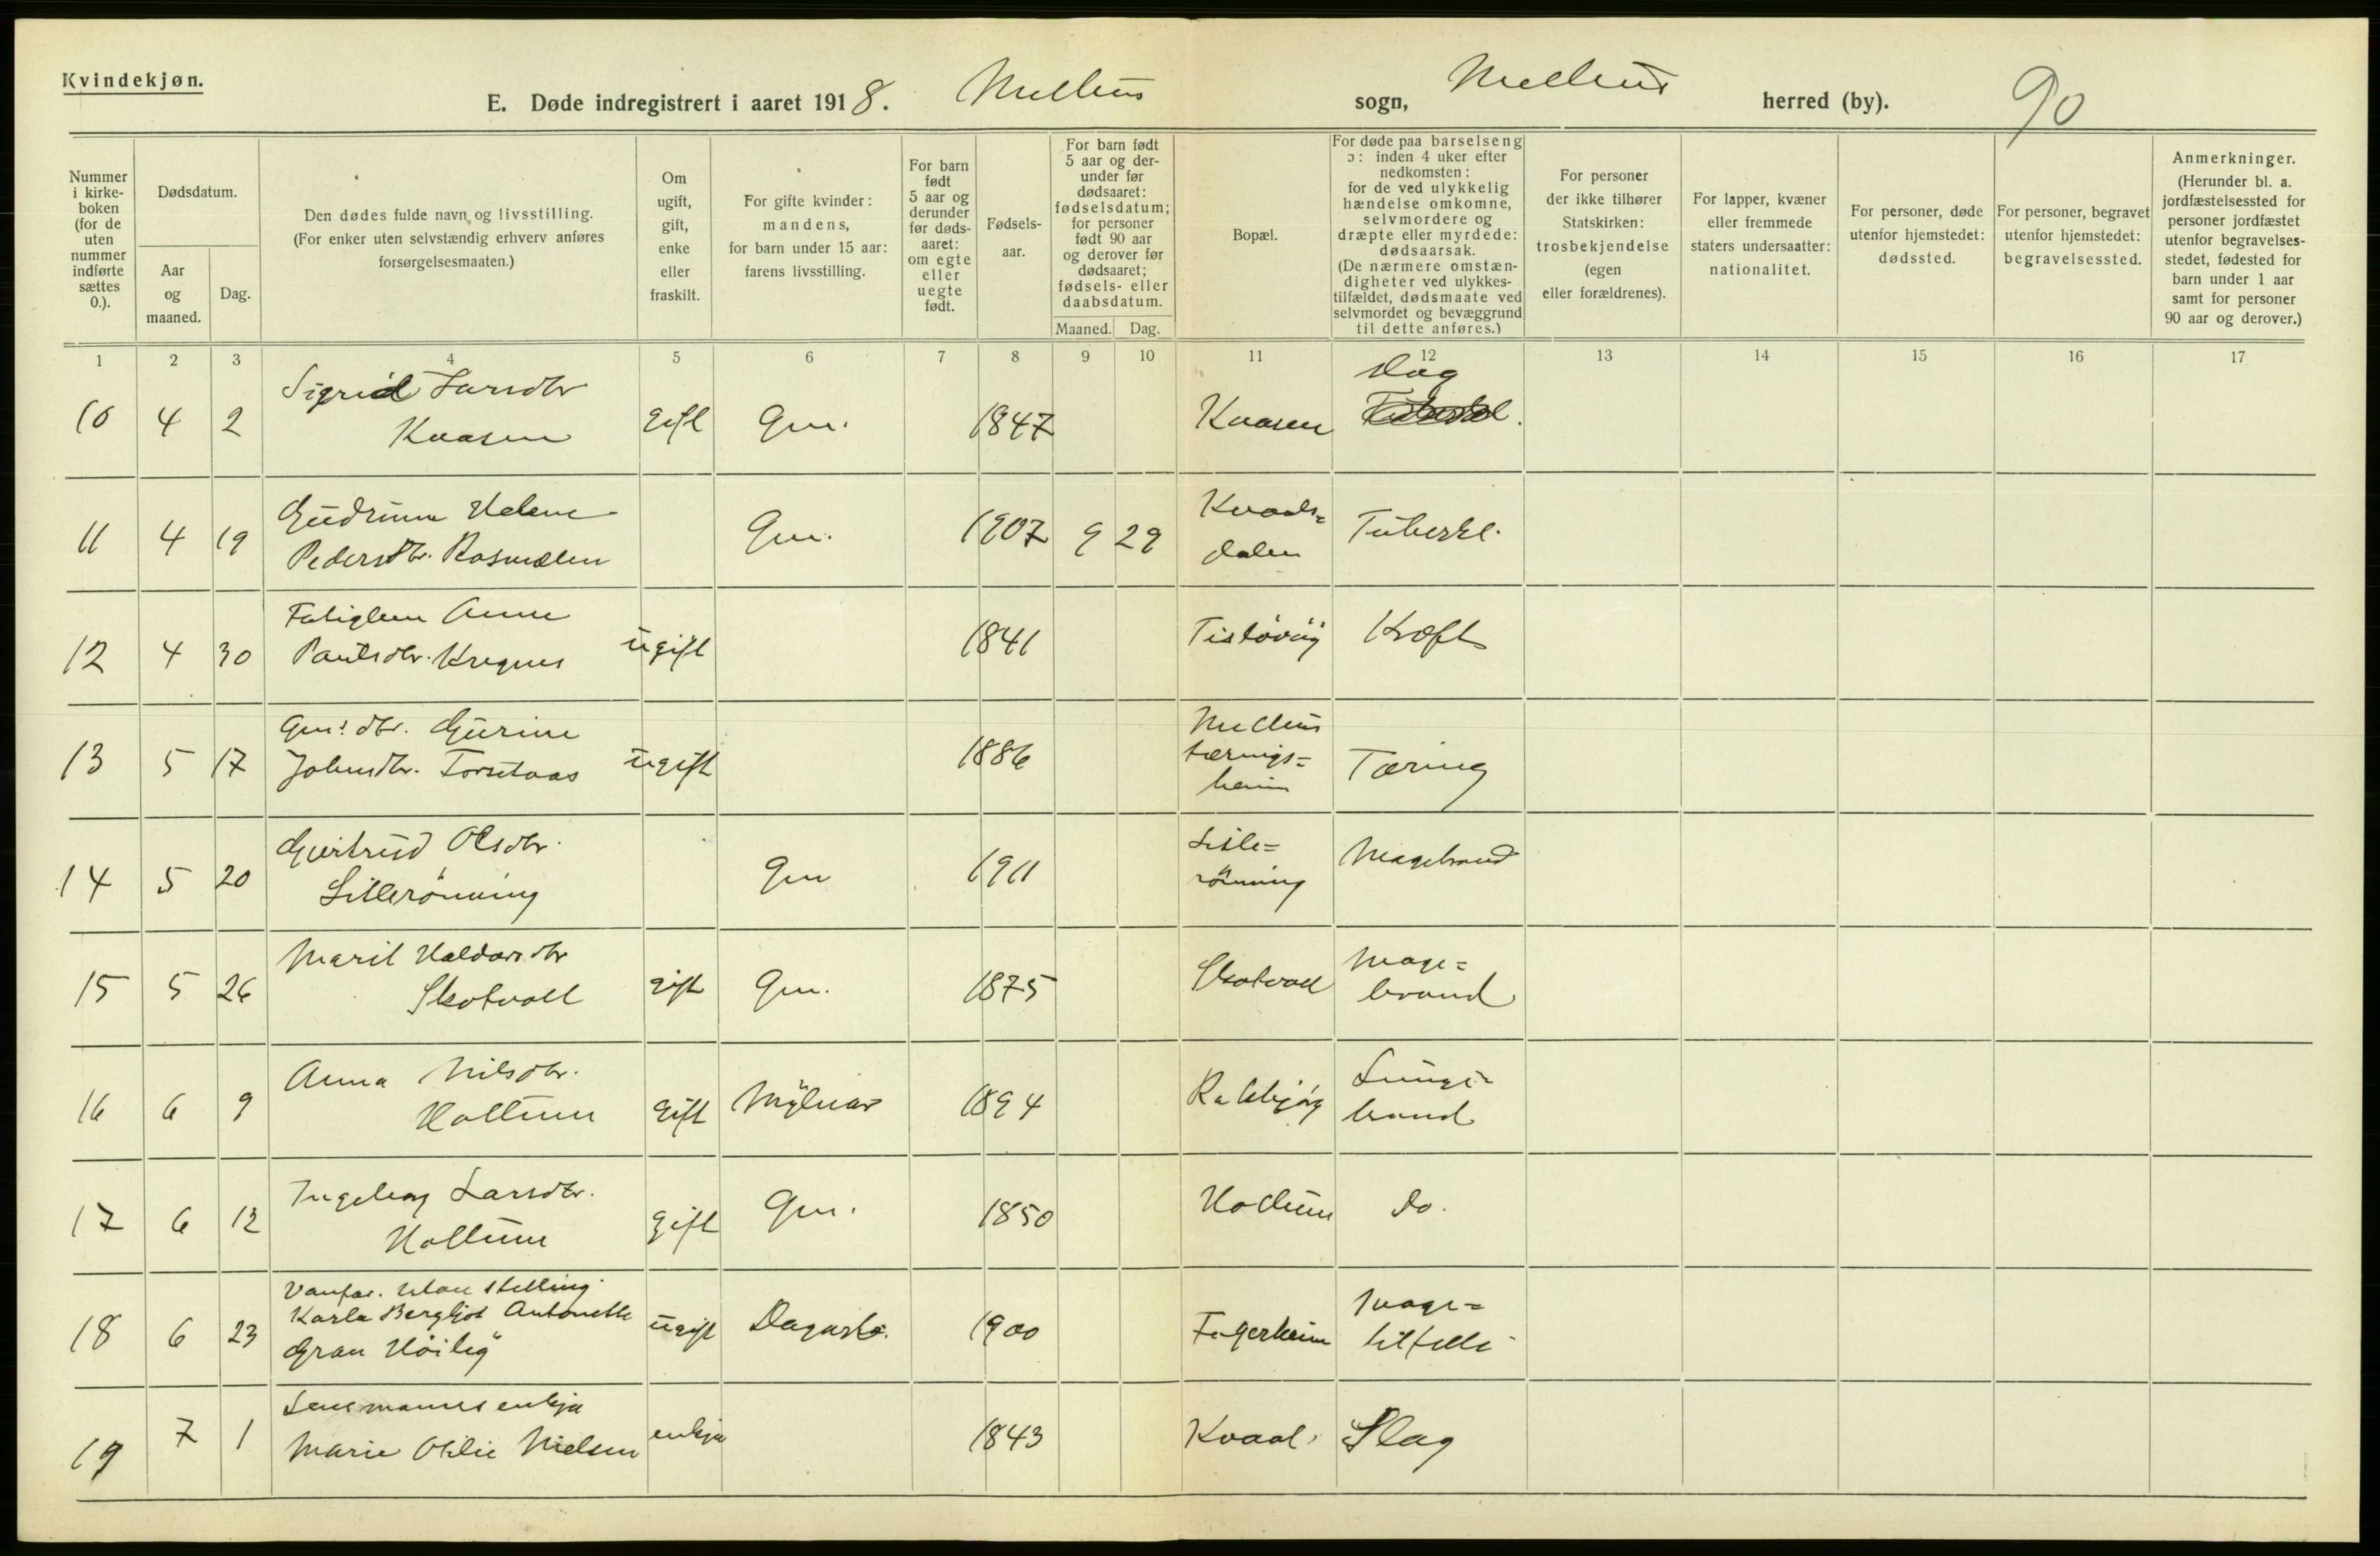 Kvindekjøn.
E. Døde indregistrert i aaret 1918. Melhus sogn, Melhus herred (by). 90
Nummer i kirkeboken (for de uten nummer indførte sættes 0.).
Dødsdatum.
Aar og maaned.
Dag.
Den dødes fulde navn og livsstilling.
(For enker uten selvstændig erhverv anføres forsørgelsesmaaten.)
Om ugift, gift, enke eller fraskilt.
For gifte kvinder: mandens, for barn under 15 aar: farens livsstilling.
For barn født 5 aar og derunder før dødsaaret: om egte eller uegte født.
Fødselsaar.
For barn født 5 aar og derunder før dødsaaret: fødselsdatum; for personer født 90 aar og derover før dødsaaret; fødsels- eller daabsdatum.
Maaned. Dag.
Bopæl.
For døde paa barselseng ɔ: inden 4 uker efter nedkomsten: for de ved ulykkelig hændelse omkomne, selvmordere og dræpte eller myrdede: dødsaarsak.
(De nærmere omstændigheter ved ulykkestilfældet, dødsmaate ved selvmordet og bevæggrund til dette anføres.)
For personer der ikke tilhører Statskirken: trosbekjendelse (egen eller forældrenes).
For lapper, kvæner eller fremmede staters undersaatter: nationalitet.
For personer, døde utenfor hjemstedet: dødssted.
For personer, begravet utenfor hjemstedet: begravelsessted.
Anmerkninger.
(Herunder bl. a. jordfæstelsessted for personer jordfæstet utenfor begravelsesstedet, fødested for barn under 1 aar samt for personer 90 aar og derover.)
1 2 3 4 5 6 7 8 9 10 11 12 13 14 15 16 17
Sigrid Larsdtr slag
10 4 2 Kvasen gift Gm. 1847 Kvasen
Gudrun Helene Kvaals=
11 4 19 Pedersdtr. Rosmælen Gm. 1907 9 29 dalen Tuberkl.
Fatiglem Anne
12 4 30 Paulsdtr. Kregnes ugift 1841 Kræft
Gm's dtr. Gurine Melhus
13 5 17 Johnsdtr. ugift 1886 tærings= Tæring
heim
Gjertrud Olsdtr. Lille=
14 5 20 Lillerönning Gm 1911 rönning Magebrand
Marit Haldorsdtr Mage=
15 5 26 Skotvoll gift Gm. 1875 Skotvoll brand
Anna Nilsdtr. Lunge=
16 6 9 Hollum gift Mylnar 1894 brand
Ingeborg Larsdtr.
17 6 12 Hollum gift Gm. 1850 Hollum Do.
Vanfør. Utan stelling
Karla Bergljot Antonette Mage=
18 6 23 Gran ugift Dagarb. 1900 Fagerheim tilfelle
Lensmanns enkja
19 7 1 Marie Otilie Nielsen enkja 1843 Kvaal. Slag